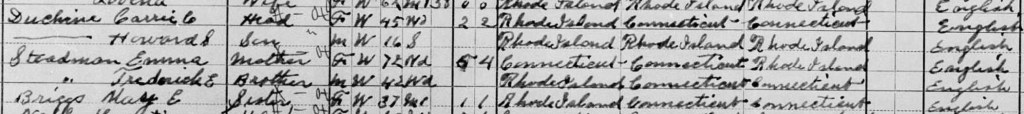 Wife F W 62 M 38 0 0 Rhode Island Rhode Island Rhode Island English
Duchine Carrie C Head F W 45 Wd 2 2 Rhode Island Connecticut Connecticut English
—— Howard S Son M W 16 S Rhode Island Rhode Island Rhode Island English
Steadman Emma Mother F W 72 Wd 5 4 Connecticut Connecticut Rhode Island English
" Frederick E Brother M W 42 Wd Rhode Island Connecticut Connecticut English
Briggs May E Sister F W 37 M1 1 1 Rhode Island Connecticut Connecticut English